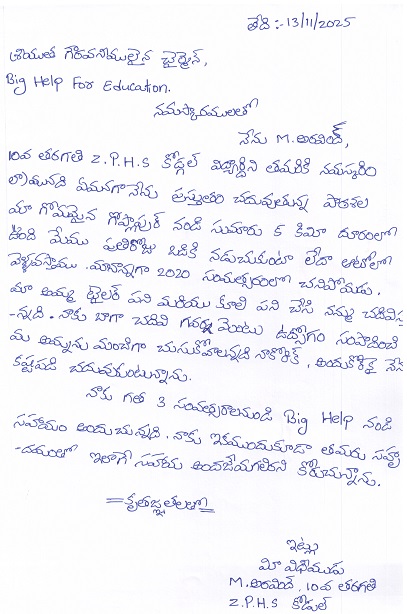 తేది :- 13/11/2025
శ్రీయుత గౌరవనీయులైన ఛైర్మెన్,
Big Help For Education.
నమస్కారములతో
నేను M. అరవింద్,
10వ తరగతి Z.P.H.S కోడ్గల్ విద్యార్థిని తమరికి నమస్కరిం
చి వ్రాయునది ఏమనగా నేను ప్రస్తుతం చదువుతున్న పాఠశాల
మా గ్రామమైన నుండి సుమారు 5 కిమీ దూరంలో
ఉంది మేము ప్రతిరోజు బడికి నడుచుకుంటా లేదా ఆటోలో
వెళ్తూవస్తాము. మానాన్నగారు 2020 సంవత్సరంలో చనిపోయడు.
మా అమ్మ టైలర్ పని మరియు కూలి పని చేసి నన్ను చదివిస్తు
-న్నది. నాకు బాగా చదివి గవర్నమెంటు ఉద్యోగం సంపాదించి
మా అమ్మను మంచిగా చుసుకోవాలన్నది నాకోరిక, అందుకొరకై నేను
కష్టపడి చదువుకుంటున్నాను.
నాకు గత 3 సంవత్సరాలనుండి Big Help నుండి
సహాయం అందుచున్నది. నాకు ఇకముందుకూడా తమరు సహృ
-దయంతో ఇలాగే సహాయం అందజేయగలరని కోరుచున్నాను.
=కృతజ్ఞతలతో=
ఇట్లు
మీ విధేయుడు
M. అరవింద్, 10వ తరగతి
Z.P.H.S కోడ్గల్